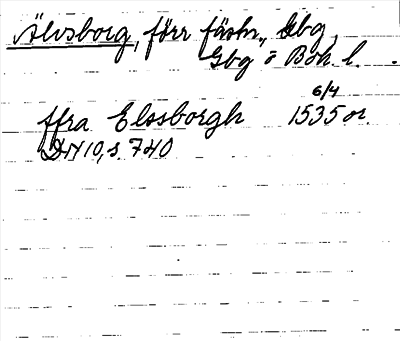 Älvsborg, förr fästn., Gbg,
Gbg o Boh. l.
6/4
ffra Elssborgh 1535 or.
DN 10, s. 740